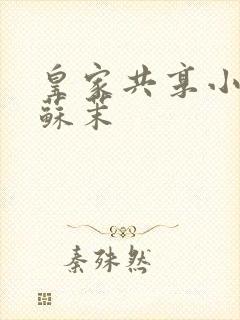 皇家共享小
蘇茉
秦殊然